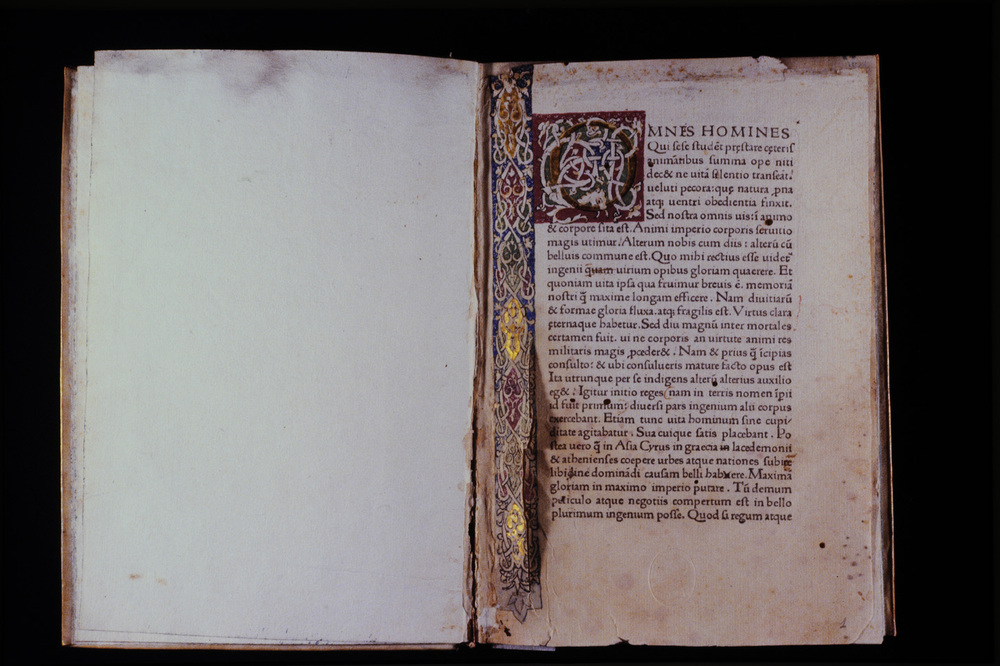 OMNES HOMINES
Qui sese studẽt pręstare cęteris
animãtibus summa ope niti
dec& ne uitã silentio transeãt.
ueluti pecora: quę natura ꝓna
atq; uentri obedientia finxit.
Sed nostra omnis uis: ĩ animo
& corpore sita est. Animi imperio corporis seruitio
magis utimur. Alterum nobis cum diis: alterũ cũ
belluis commune est. Quo mihi rectius esse uidet
ingenii quam uirium opibus gloriam quaerere. Et
quoniam uita ipsa qua fruimur breuis ẽ. memoriã
nostri q̃ maxime longam efficere. Nam diuitiarũ
& formae gloria fluxa. atq; fragilis est. Virtus clara
ęternaque habetur. Sed diu magnũ inter mortales.
certamen fuit. ui ne corporis an uirtute animi res
militaris magis ꝓceder&. Nam & prius q̃ ĩcipias
consulto: & ubi consulueris mature facto opus est
Ita utrunque per se indigens alterũ alterius auxilio
eg&. Igitur initio reges nam in terris nomen ĩpii
id fuit primum: diuersi pars ingenium alii corpus
exercebant. Etiam tunc uita hominum sine cupi/
ditate agitabatur. Sua cuique satis placebant. Po
stea uero q̃ in Asia Cyrus in graecia lacedemonii
& athenienses coepere urbes atque nationes subire
libidine dominãdi causam belli habuere. Maximã
gloriam in maximo imperio putare. Tũ demum
periculo atque negotiis compertum est in bello
plurimum ingenium posse. Quod si regum atque